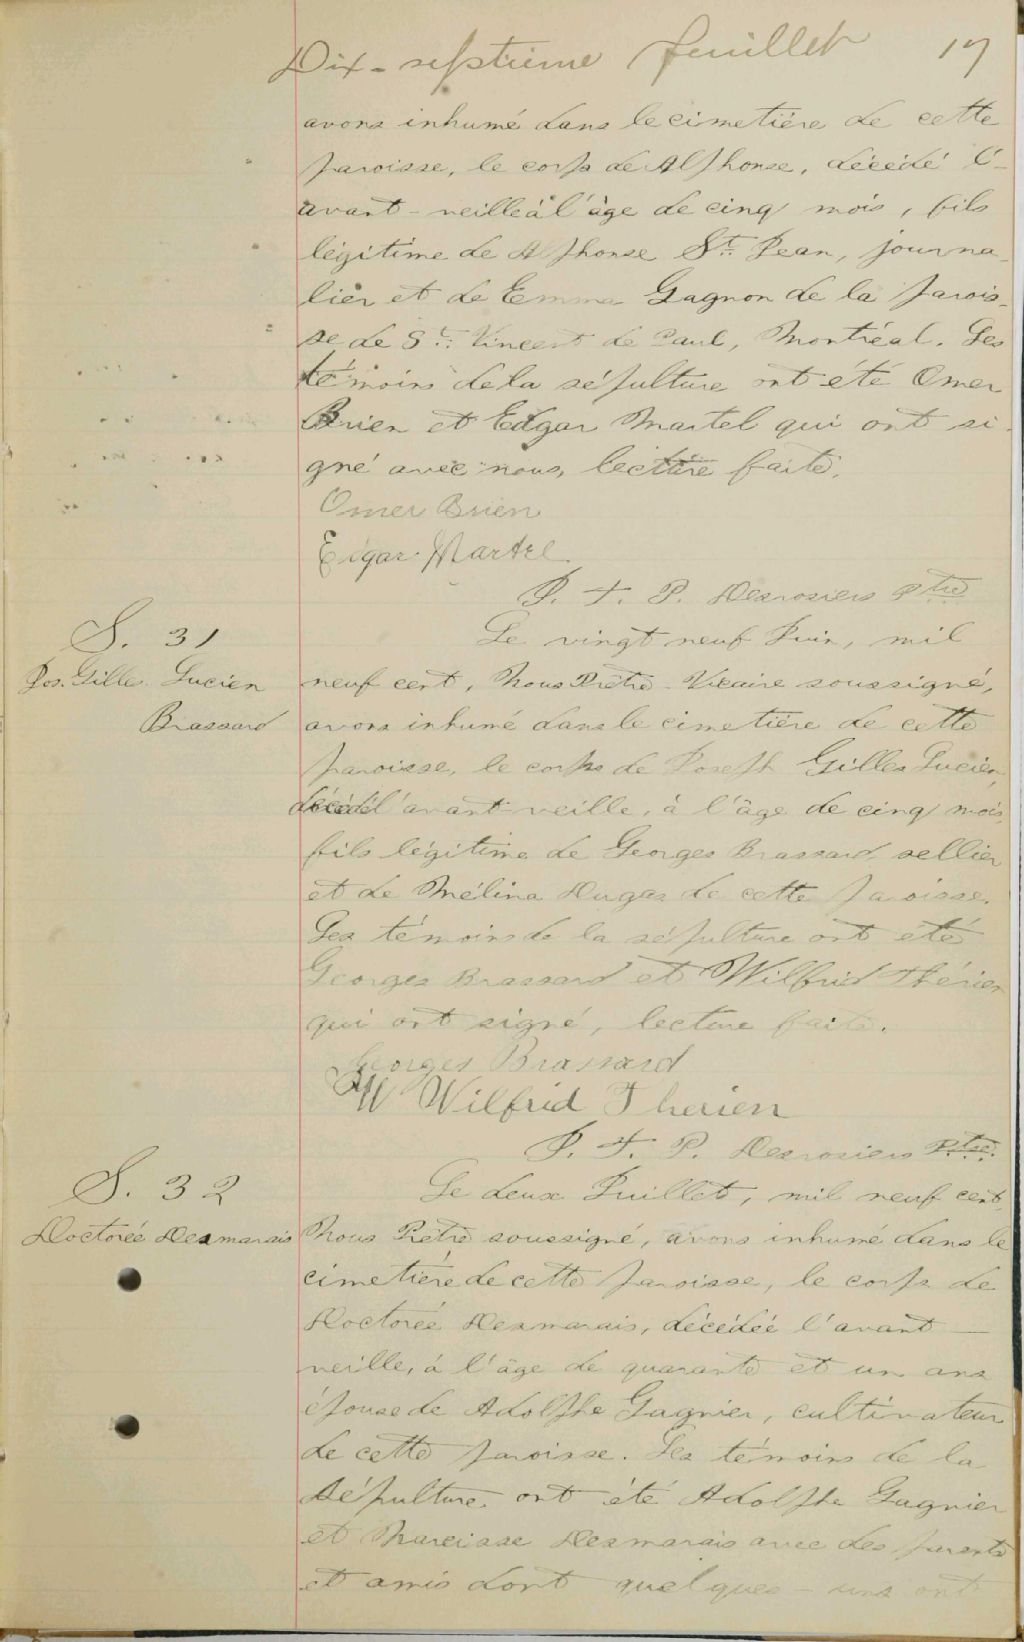 Dix-septième feuillet 17
avons inhumé dans le cimetière de cette
paroisse, le corps de Alphonse, décédé l'-
avant-veille à l'âge de cinq mois, fils
légitime de Alphonse St. Jean, journa-
lier et de Emma Gagnon de la parois-
se de St. Vincent de Paul, Montréal. Les
témoins de la sépulture ont été Omer
Brien et Edgar Martel qui ont si-
gné avec nous, lecture faite.
Omer Brien
Edgar Martel
J. F. P. Desrosiers Ptre
S. 31
Jos. Gilles Lucien
Brassard
Le vingt neuf Juin, mil
neuf cent, Nous Prêtre-Vicaire soussigné,
avons inhumé dans le cimetière de cette
paroisse, le corps de Joseph Gilles Lucien,
décédé l'avant-veille, à l'âge de cinq mois,
fils légitime de Georges Brassard, sellier
et de Mélina Dugas de cette paroisse.
Les témoins de la sépulture ont été
Georges Brassard et Wilfrid Thérien
qui ont signé, lecture faite.
Georges Brassard
W Wilfrid Therien
J. F. P. Desrosiers Ptre.
S. 32
Doctorée Desmarais
Le deux Juillet, mil neuf cent,
Nous Prêtre soussigné, avons inhumé dans le
cimetière de cette paroisse, le corps de
Doctorée Desmarais, décédée l'avant-
veille, à l'âge de quarante et un ans
épouse de Adolphe Gagnier, cultivateur
de cette paroisse. Les témoins de la
sépulture ont été Adolphe Gagnier
et Narcisse Desmarais avec des parents
et amis dont quelques-uns ont